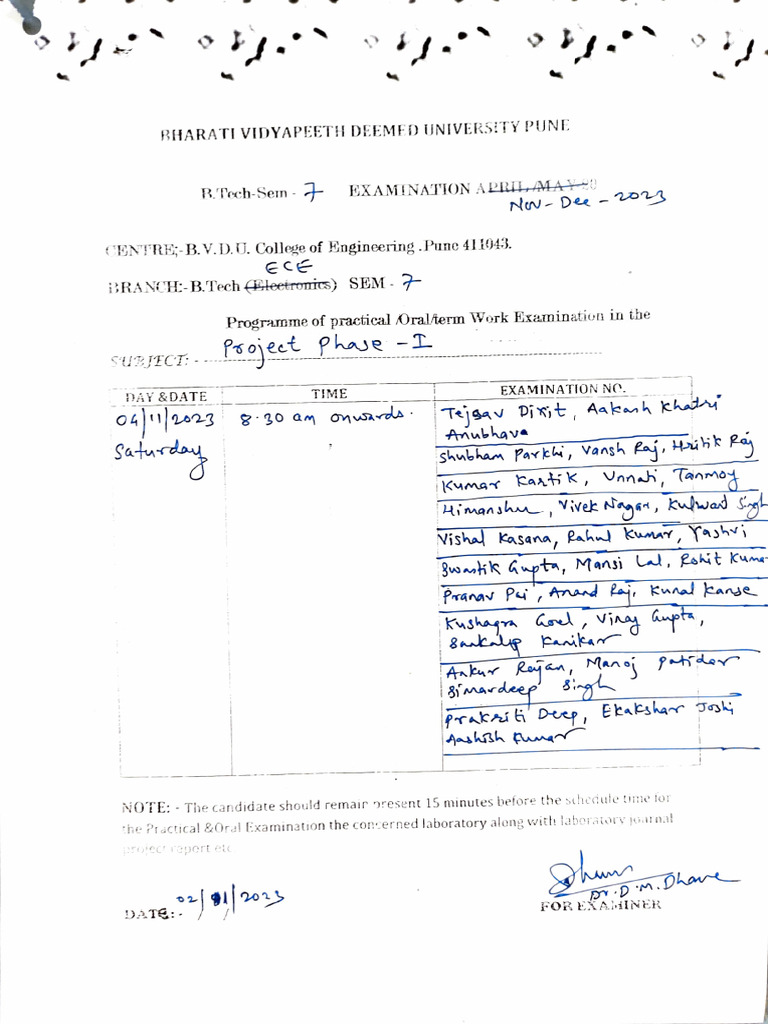 BHARATI VIDYAPEETH DEEMED UNIVERSITY PUNE
B.Tech-Sem - 7 EXAMINATION APRIL /MAY 20
Nov - Dec - 2023
CENTRE;-B.V.D.U. College of Engineering .Pune 411043.
ECE
BRANCH:-B.Tech (Electronics) SEM - 7
Programme of practical /Oral/term Work Examination in the
SUBJECT: - Project Phase - I
DAY &DATE TIME EXAMINATION NO.
04/11/2023 8.30 am onwards. Tejsav Dixit, Aakash Khatri
Anubhava
Saturday
Shubham Parkhi, Vansh Raj, Hritik Raj
Kumar Kartik, Unnati, Tanmoy
Himanshu, Vivek Nagar, Kulwant Singh
Vishal Kasana, Rahul Kumar, Yashvi
Swastik Gupta, Mansi Lal, Rohit Kumar
Pranav Pai, Anand Raj, Kunal Kanse
Kushagra Goel, Vinay Gupta,
Sankalp Kanikar
Ankur Rajan, Manoj Patidar
Simardeep Singh
Prakriti Deep, Ekakshar Joshi
Aashish Kumar
NOTE: - The candidate should remain present 15 minutes before the schedule time for
the Practical &Oral Examination the concerned laboratory along with laboratory journal
project report etc
Dr. D. M. Dhane
DATE: - 02/11/2023 FOR EXAMINER